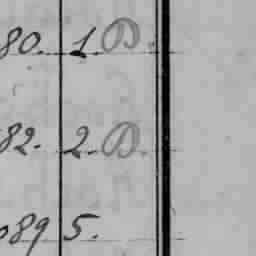 80. 1. D.
82. 2. D.
089 5.